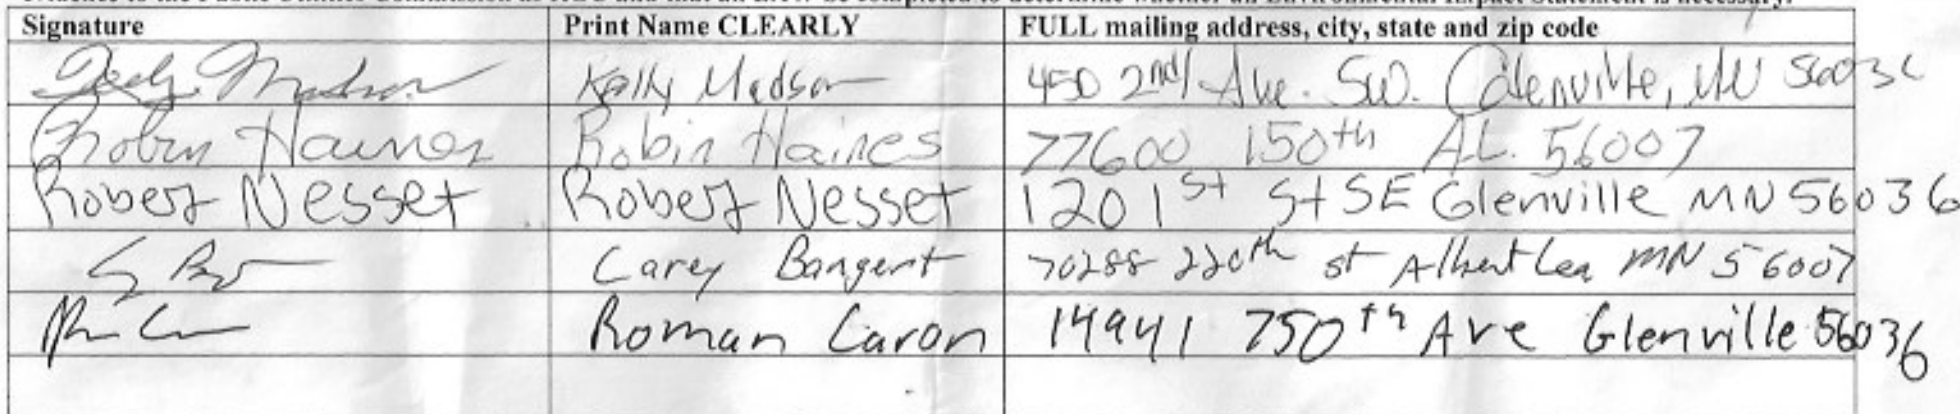 Signature Print Name CLEARLY FULL mailing address, city, state and zip code
Kelly Madson Kelly Madson 450 2nd Ave. SW. Glenville, MN 56036
Robin Haines Robin Haines 77600 150th AL. 56007
Robert Nesset Robert Nesset 1201st St SE Glenville MN 56036
Carey Bangert 70288 220th st Albert Lea MN 56007
Roman Caron 14941 750th Ave Glenville 56036